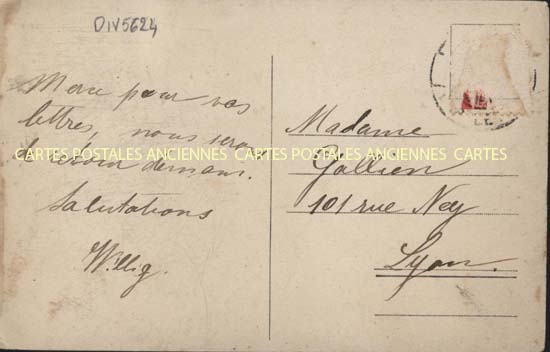 DIV5624
Merci pour vos
lettres, nous serons
de retour demain.
Salutations
Willig.
CARTES POSTALES ANCIENNES CARTES POSTALES ANCIENNES CARTES
Madame
Gallien
101 rue Ney
Lyon.